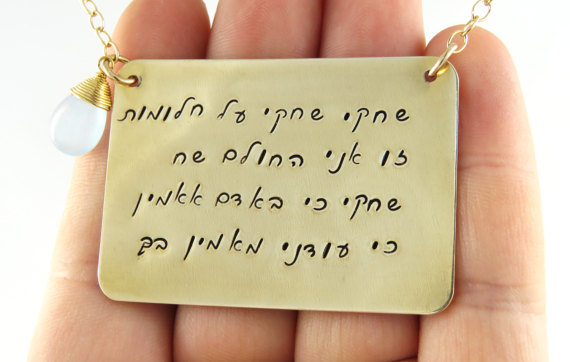 שחקי שחקי על חלומות
זו אני החולם שח
שחקי כי באדם אאמין
כי עודני מאמין בך